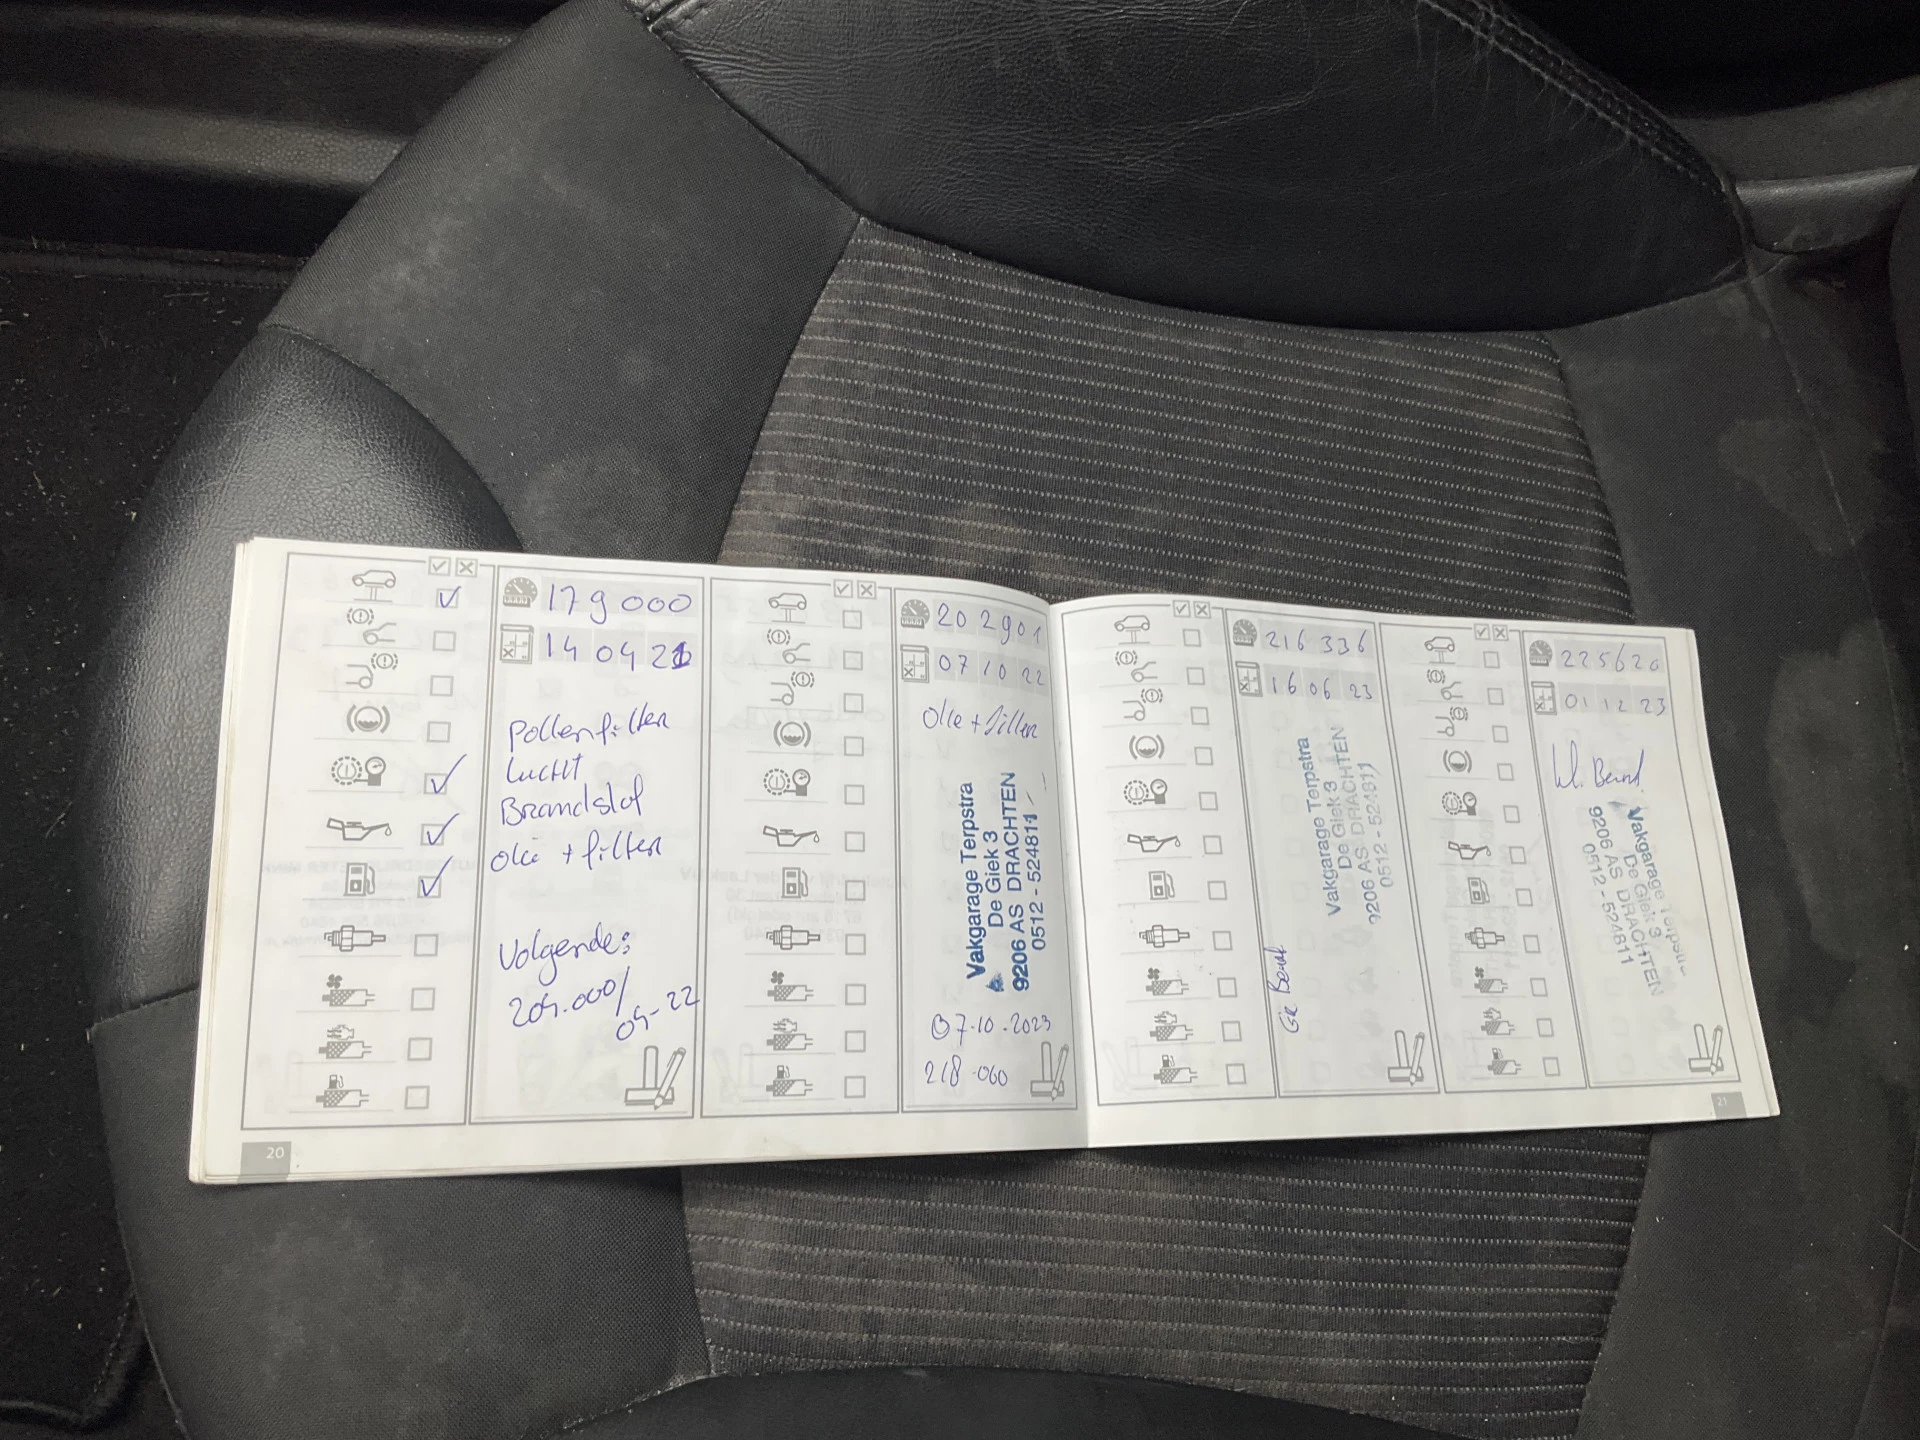 179000
140421
Pollenfilter
lucht
Brandstof
olie + filter
Volgende:
204.000/
04-22
20
202901
071022
Olie + filter
Vakgarage Terpstra
De Giek 3
9206 AS DRACHTEN
0512 - 524811
07-10-2023
218.060
216336
160623
Vakgarage Terpstra
De Giek 3
9206 AS DRACHTEN
0512 - 524811
225620
011223
Vakgarage
De Giek 3
9206 AS DRACHTEN
0512 - 524811
21